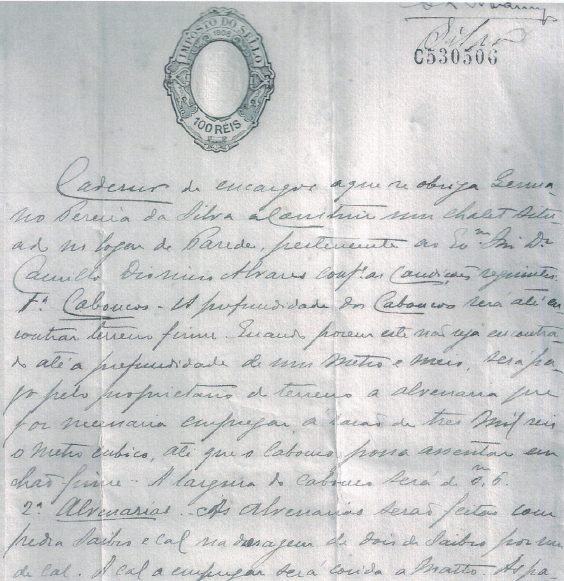 IMPOSTO DO SELLO
1906
100 REIS
Silva
C530506
Caderno de encargos a que se obriga Germa-
no Pereira da Silva a Construir um chalet situ-
ado no logar de Parede, pertencente ao Exmo Snr Dr
Camillo Dionisio Alvares conf.e as Condições seguintes.
1ª Caboucos - A profundidade dos Caboucos será até en
contrar terreno firme. Quando porem este não seja encontra
do até a profundidade de um Metro e meio, será pa-
go pelo proprietario do terreno a alvenaria que
for necessaria empregar a razão de tres Mil reis
o Metro cubico, até que o Cabouco possa assentar em
chão firme. A largura do cabouco será de 0m,6.
2ª Alvenarias - As Alvenarias serão feitas com
pedra Saibro e cal na dosagem de dois de Saibro por um
de cal. A cal a empregar será cosida a Matto. As pa-